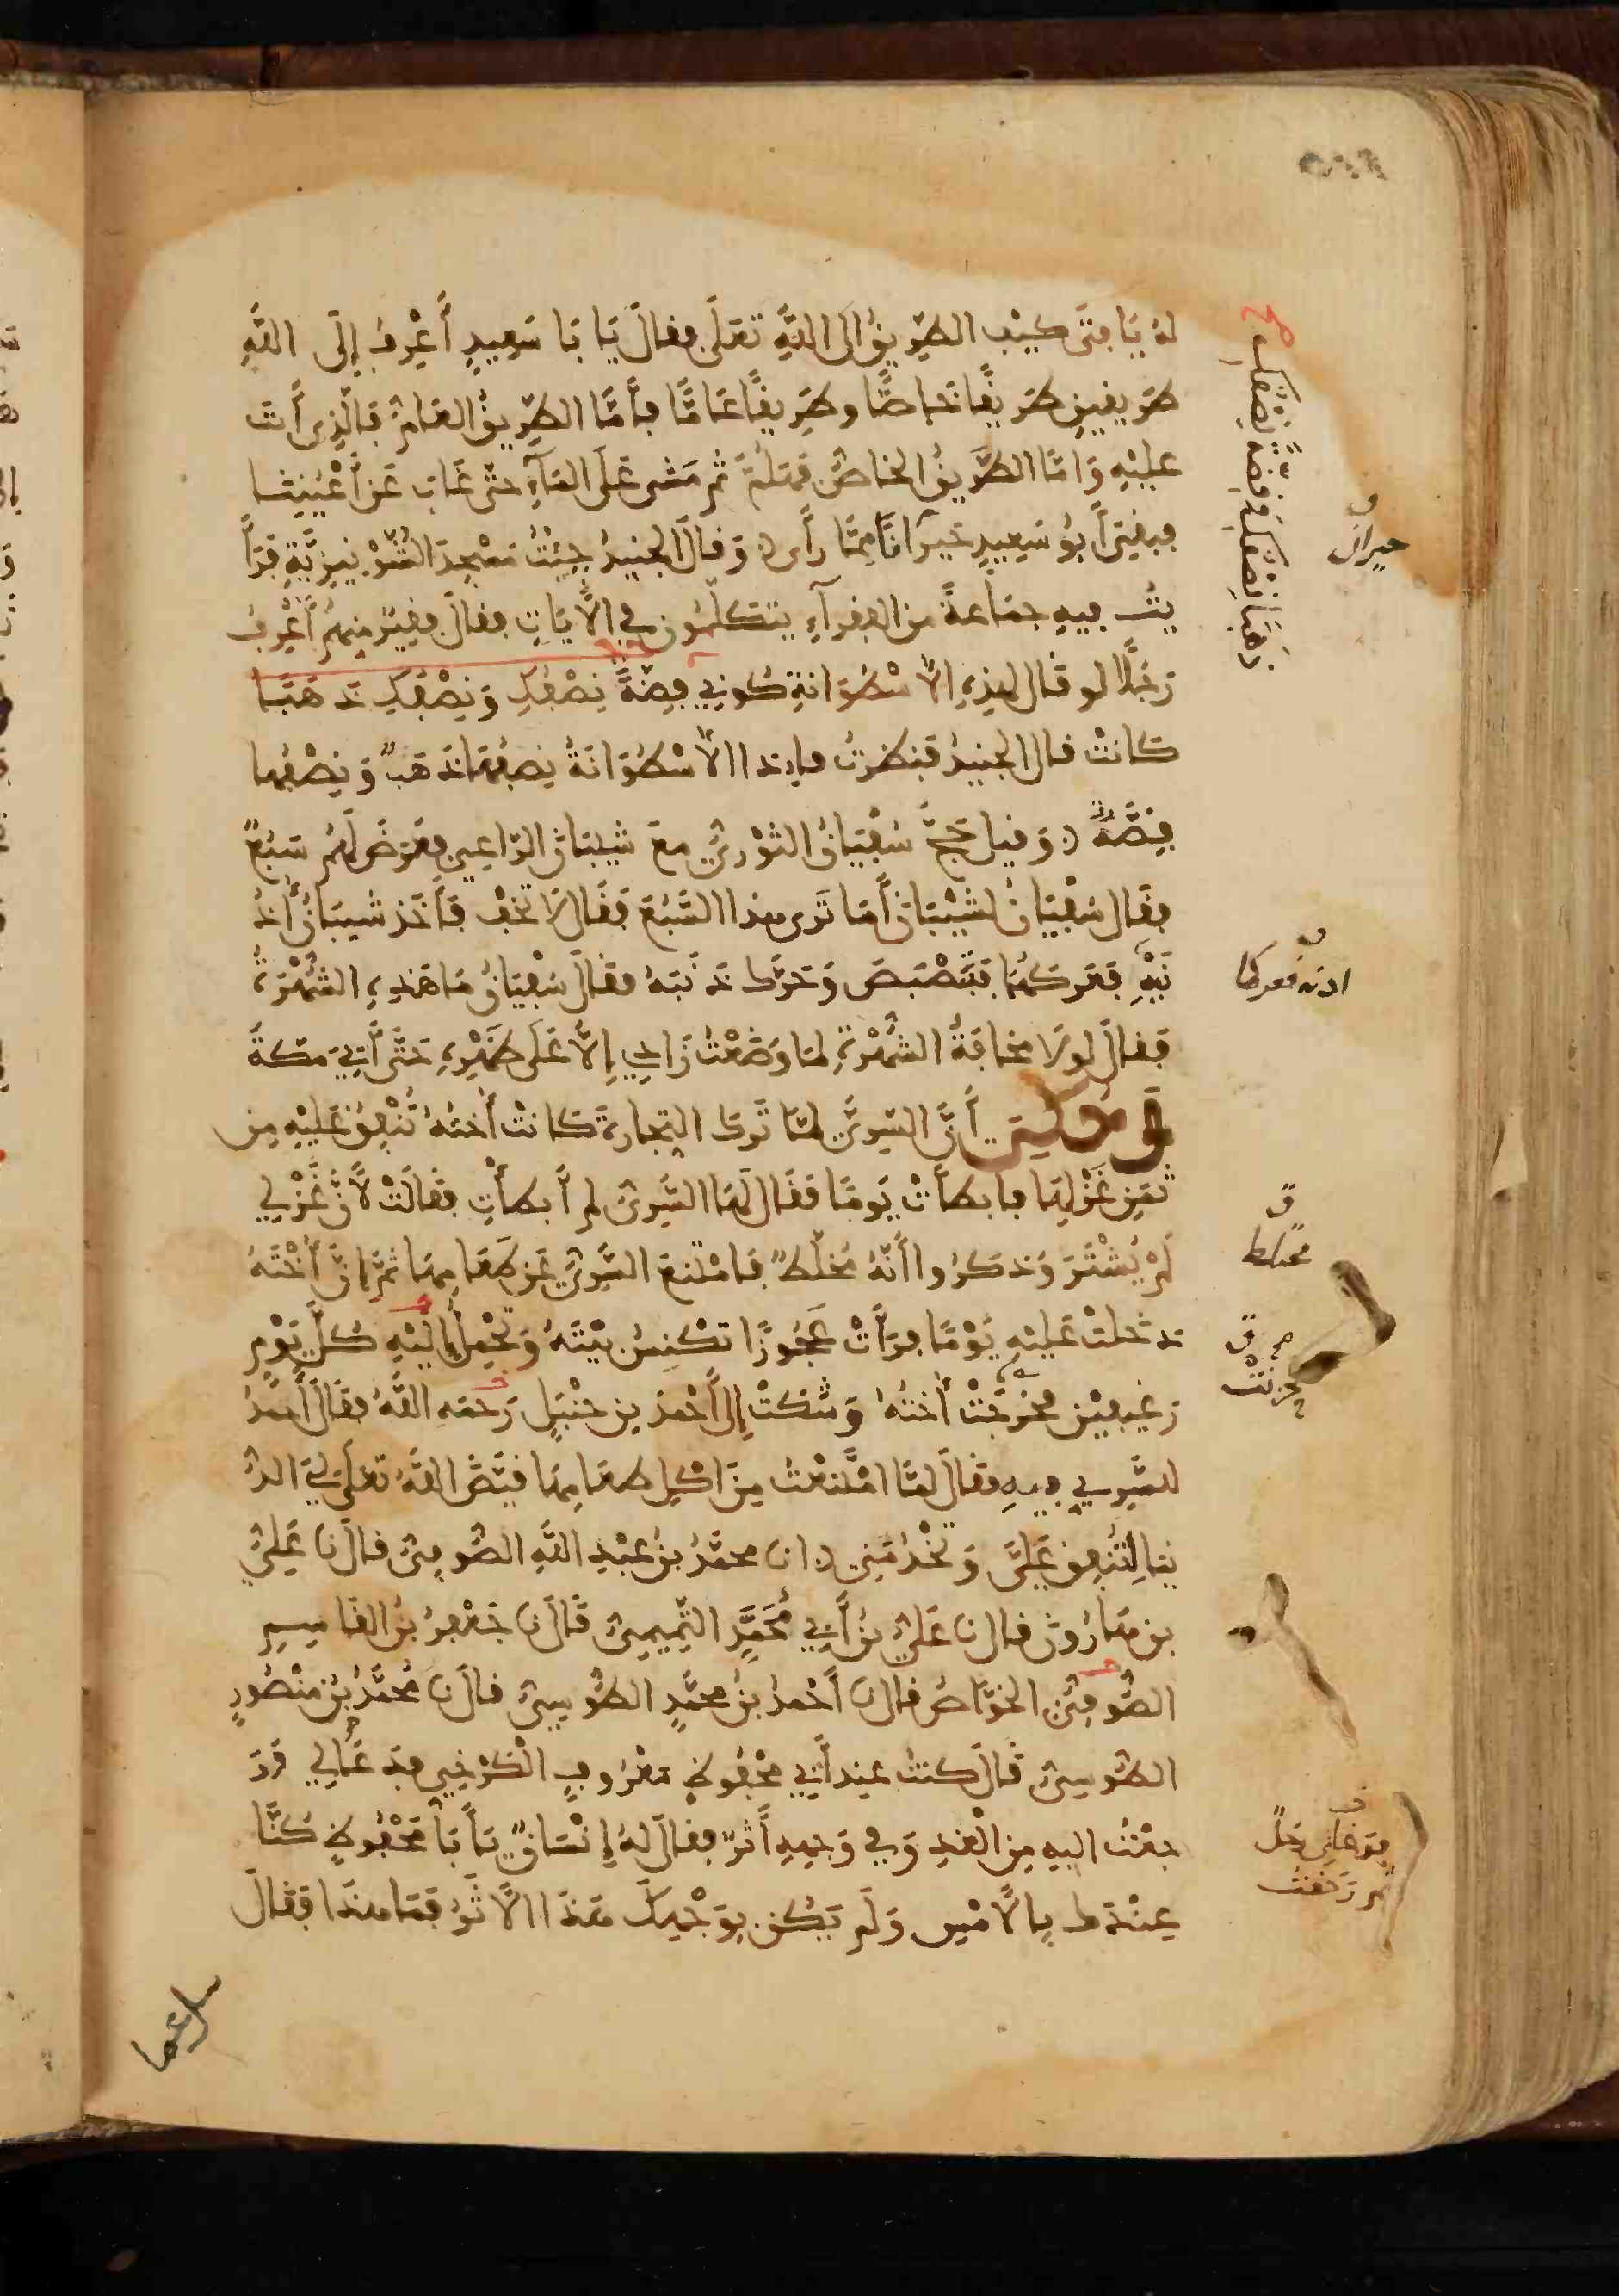 لهُ يَا فتَى كيْف الطرِيقُ الَى اللَّهِ تعَلَى فقالَ يَا بَا سَعِيدٍ أَعْرِفُ إلَى اللَّهِ
طَرِيقيْنِ طَرِيقًا خَاصًّا وطَرِيقًا عَامًّا فأَمَّا الطرِيقُ العَامُّ فَالَّذِى أَنتَ
عليْهِ وَامَّا الطَّرِيقُ الخاصُّ فهَلُمَّ ثمَّ مَشى عَلَى المَآءِ حتَّى غَابَ عَنْ أَعْيُنِنَا
فبقِىَ أَبُو سَعِيدٍ حَيرَانًا مِمَّا رأَى وَقالَ الجنيدُ جِئْتُ مَسْجِدَ الشُّوْنِيزِيَّةِ فرَأَ
يْتُ فيهِ جمَاعةً منَ الفقرآءِ يتكلَّمُون فِي الأَيَاتِ فقالَ فقِيرٌ منهمُ أَعْرِفُ
رَجُلًا لو قَال لهذِهِ الأُسْطُوَانةِ كُونِي فِضَّةً نِصْفُكِ وَنِصْفُكِ ذَهَبًا
كَانَتْ قال الجنيدُ فنظرتُ فإذا الأُسْطُوَانَةُ نِصفُهَا ذَهَبٌ وَنِصْفُهَا
فِضَّةٌ وَقيل حَجَّ سُفْيَانُ الثوْرِيُّ معَ شَيْبَانَ الرَّاعِي فعَرَضَ لَهُمْ سَبُعٌ
فقَال سُفْيَانُ لشَيْبَانَ أَمَا تَرَى هذا السَّبُعَ فقَال لَا تَخَفْ فَأَخَذَ شَيبَانُ أُذُ
نَيْهِ فعَرَكَهُمَا فبَصْبَصَ وَحَرَّكَ ذَنَبَهُ فقَالَ سُفْيَانُ مَا هَذِهِ الشُّهْرَةُ
فقالَ لولَا مخافةُ الشُّهْرَةِ لمَا وَضَعْتُ زَادِي إلَّا عَلَى ظهْرِهِ حَتَّى أَتِيَ مَكّةَ
وَحُكِيَ أَنَّ السَّرِيَّ لمَّا تَرَكَ التِّجَارَةَ كَانَتْ أُخْتُهُ تُنْفِقُ عَلَيْهِ مِن
ثَمَنِ غَزْلِهَا فابطأَتْ يَومًا فقَال لهَا السَّرِىُّ لِمَ أَبطأْتِ فقَالَتْ لأَنَّ غَزْلِي
لَمْ يُشْتَرَ وَذكَرُوا أَنَّهُ مُخلَّطٌ فَامْتنعَ السَّرِيُّ عَن طَعَامِهَا ثمَّ إنَّ أُخْتَهُ
دخَلتْ عَليْهِ يَوْمًا فرَأَتْ عَجُوزًا تكْنِسُ بيْتَهُ وَتَحْمِلُ إليْهِ كُلَّ يَوْمٍ
رَغِيفيْنِ فحَزِنَتْ أُختُهُ وَشكَتْ إلَى أَحْمدَ بنِ حَنْبَلٍ رَحمَه اللَّهُ فقَالَ أَحمدُ
للسَّرِيِّ فيهِ فقَالَ لمَّا امْتَنعْتُ مِنْ اكْلِ طعَامِهَا قيَّضَ اللَّهُ تعَلَى لِيَ الدُّ
نيَا لِتُنفِقَ عَلَيَّ وَتَخْدُمَنِي انا محمَّدُ بنُ عبْدِ اللَّهِ الصُّوفِيُّ قالَ نا عَلِيُّ
بن هَارُونَ قال نا عَلِيُّ بنُ أَبِي مُحَمَّدٍ التَّمِيمِيُّ قَالَ نا جَعْفَرُ بنُ القَاسِمِ
الصُّوفِيُّ الخوَّاصُ قال نا أَحْمدُ بنُ محمَّدٍ الطُّوسِيُّ قالَ نا مُحمَّدُ بْنُ مَنْصُورٍ
الطُّوسِيُّ قَالَ كنتُ عِندَ أَبِي مَحْفُوظٍ مَعْرُوفٍ الْكَرْخِيِّ فدَعَا لِي فَرَ
جَعْتُ اليهِ مِنَ الْغَدِ وَفِي وَجهِهِ أَثَرٌ فقالَ لهُ إنْسَانٌ يَا أَبَا مَحْفُوظٍ كُنَّا
عِنْدَكَ بِالأَمْسِ وَلَمْ يَكُنْ بِوَجْهِكَ هَذَا الأَثَرُ فَمَا هذَا فَقَالَ
صح
فِضَّةً نِصْفُكِ
ذهَبًا نِصْفُكِ
ق
حيران
ق
اذنه فعركها
ق
مخلط
ق
ق
ثم رَجَعْتُ
سل عما